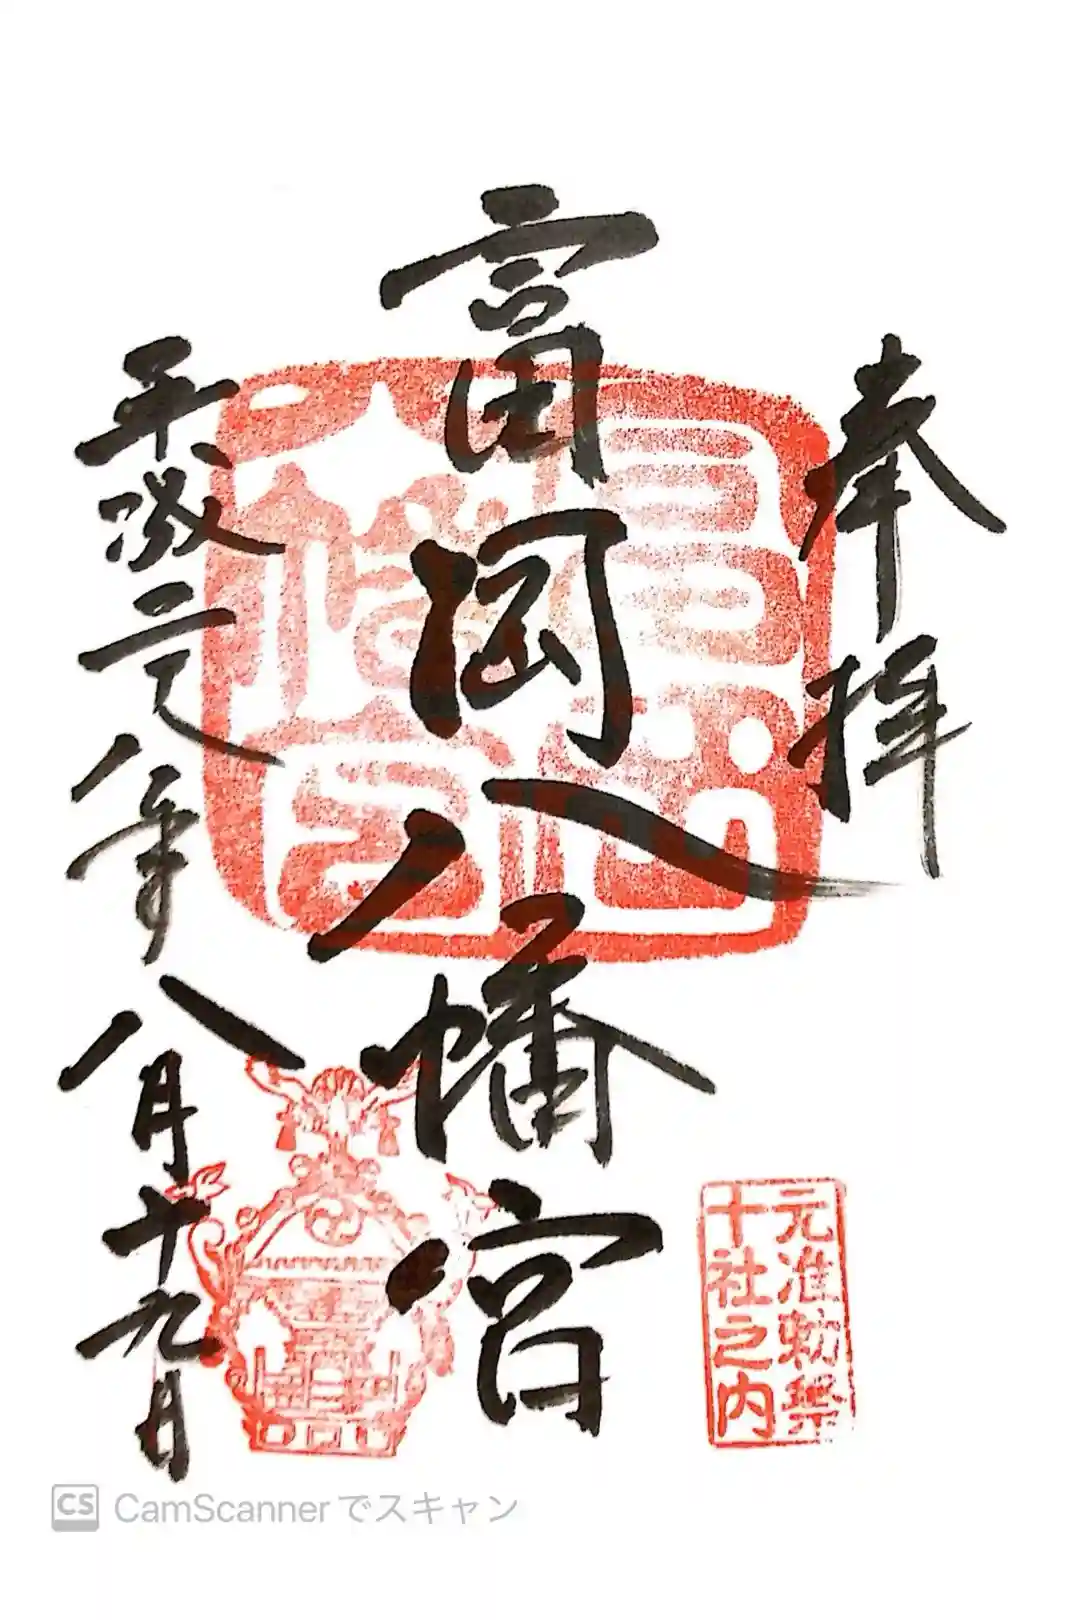 奉拝
富岡八幡宮
富岡
八幡宮
元准勅祭
十社之内
平成二十八年八月十九日
CS CamScannerでスキャン